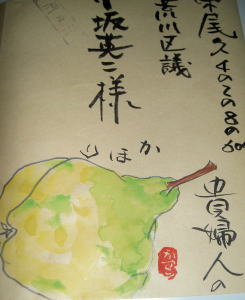 尾久4の2の8の
荒川区議
小坂英二様
貴婦人の
かほり